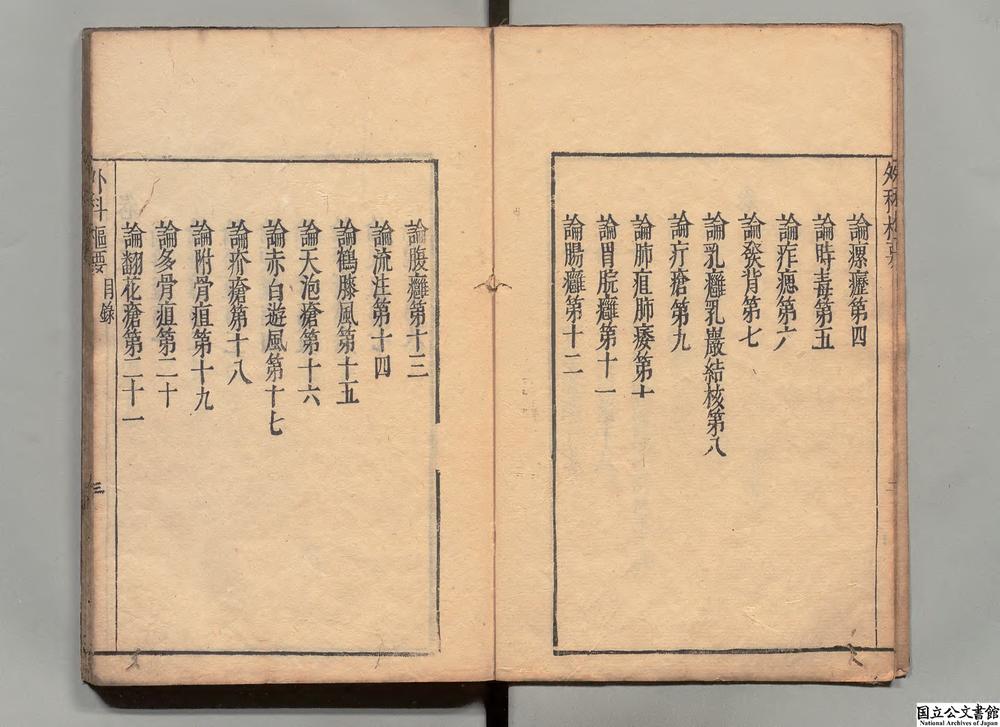 論瘰癧第四
論時毒第五
論痄腮第六
論發背第七
論乳癰乳巖結核第八
論疔瘡第九
論肺疽肺痿第十
論胃脘癰第十一
論腸癰第十二
論腹癰第十三
論流注第十四
論鶴膝風第十五
論天泡瘡第十六
論赤白遊風第十七
論疥瘡第十八
論附骨疽第十九
論多骨疽第二十
論翻花瘡第二十一
外科樞要 目錄
三
国立公文書館
National Archives of Japan